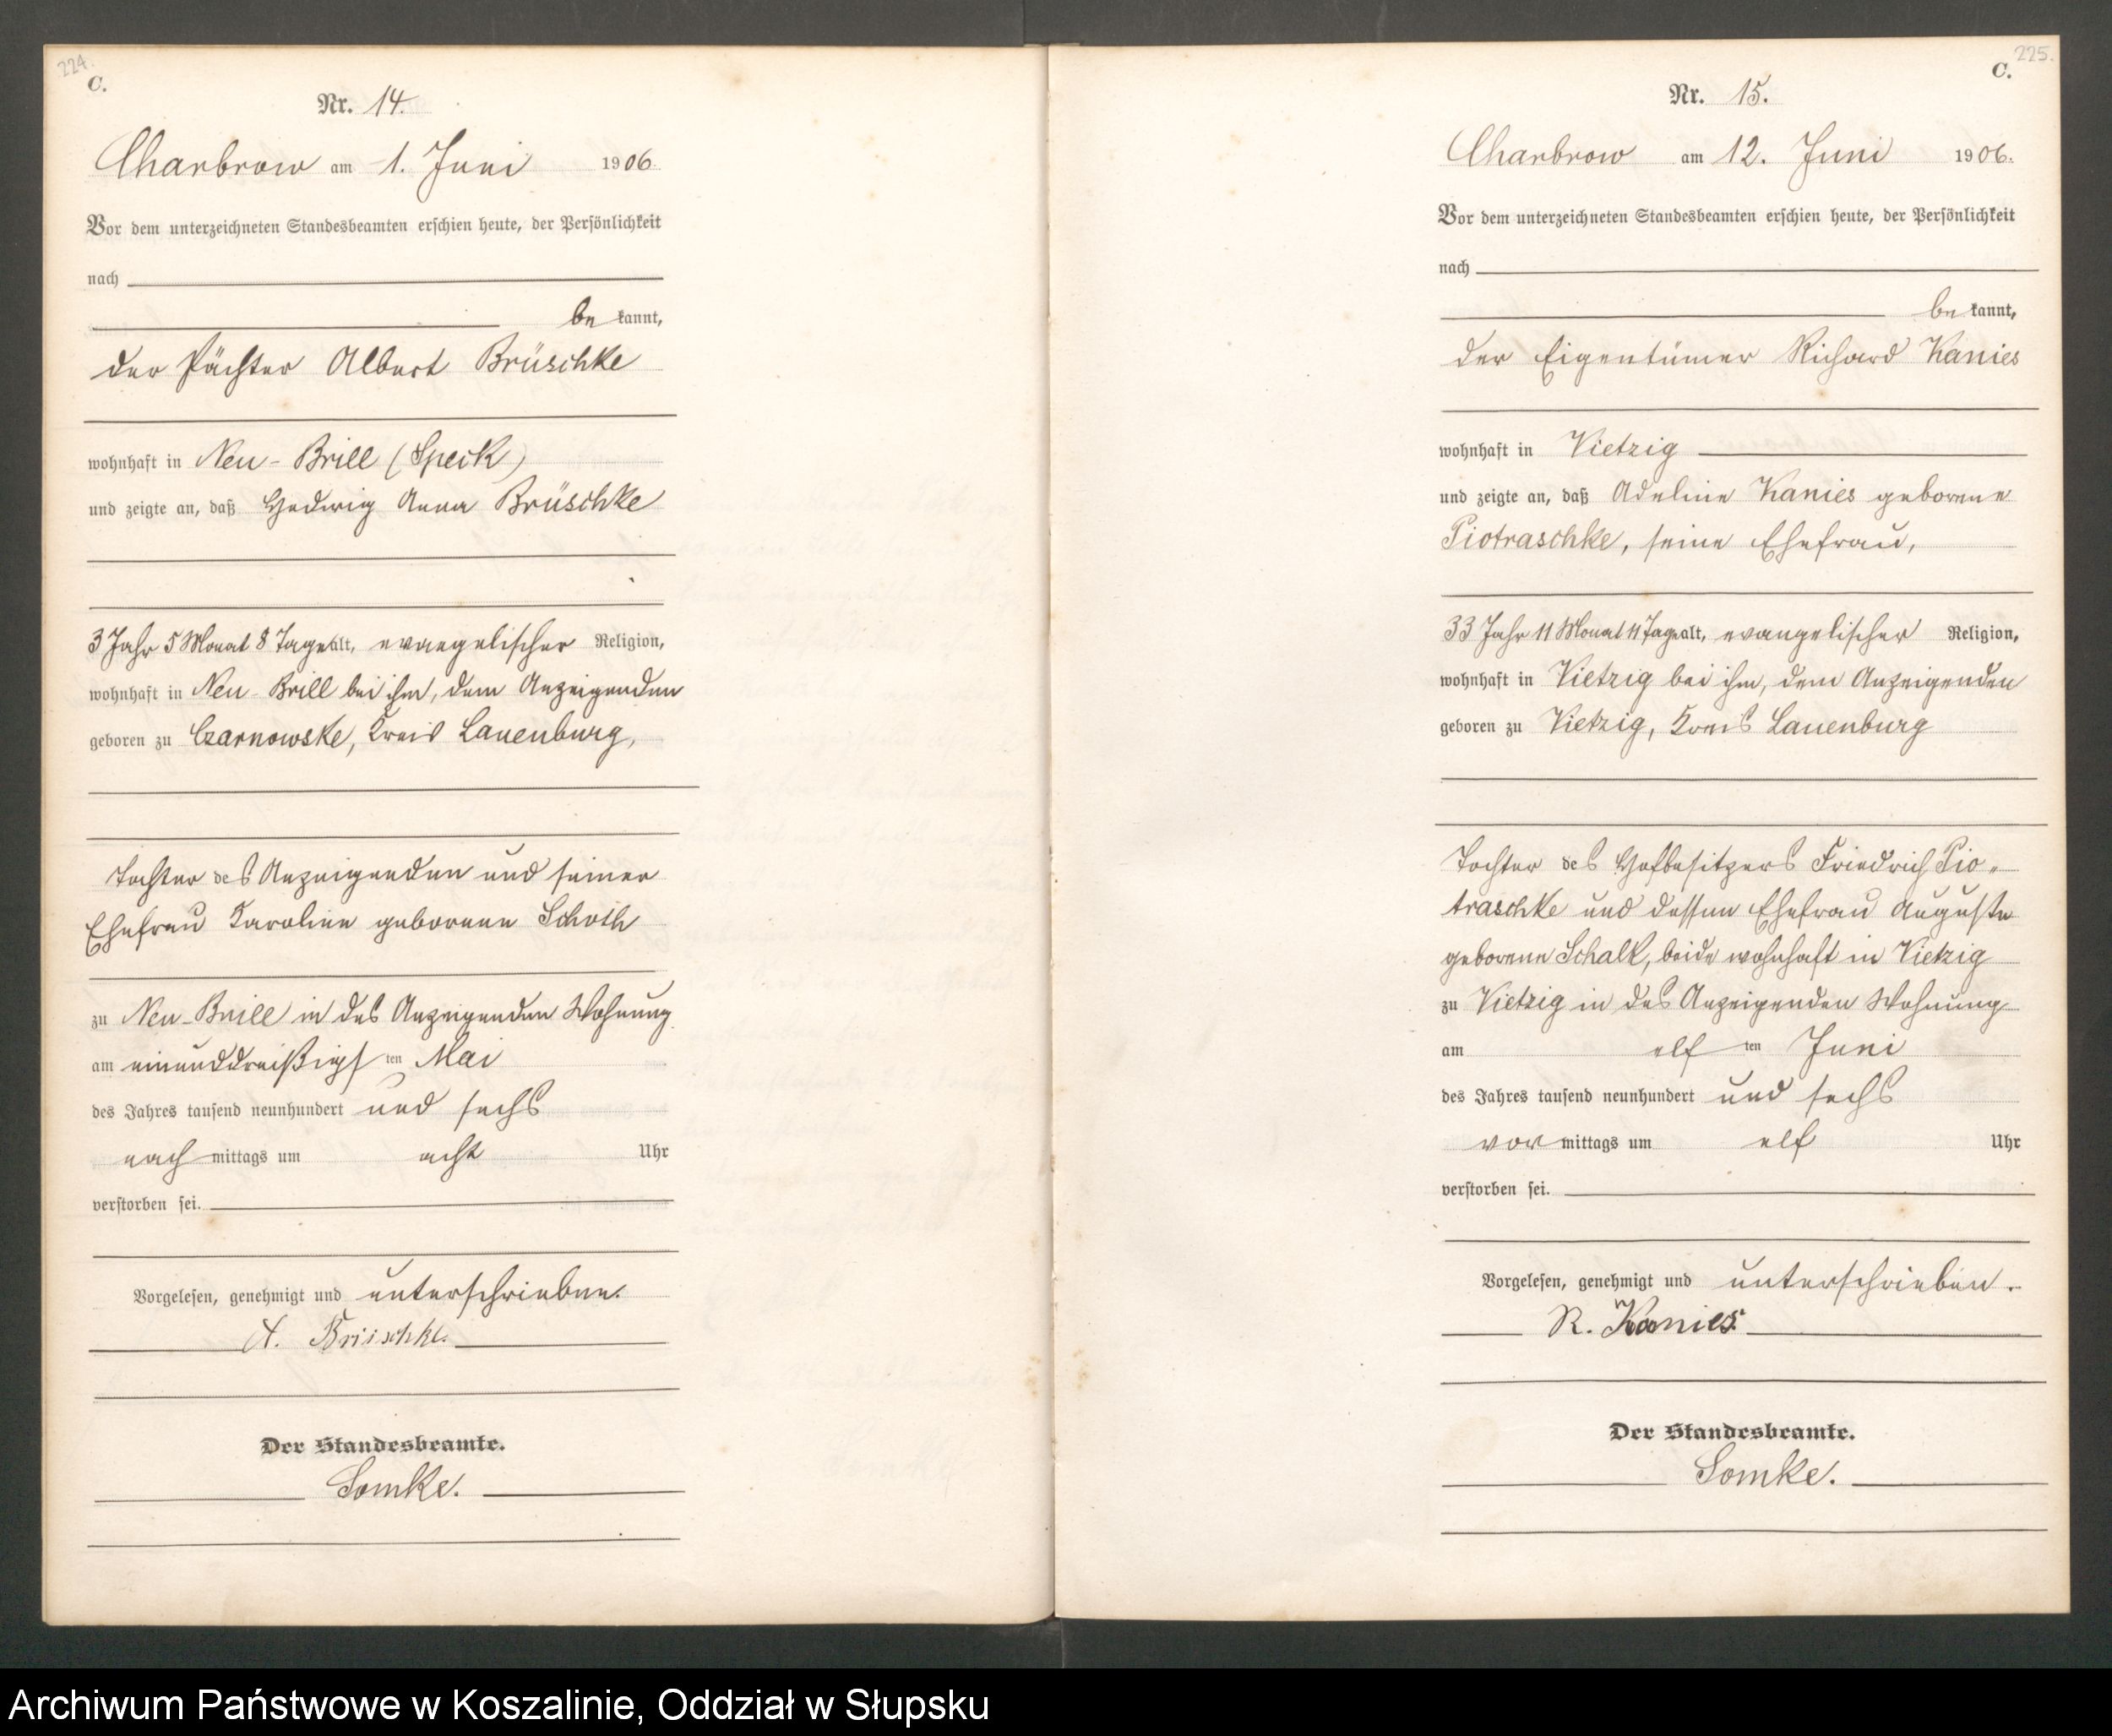 224.
C.
Nr. 14.
Charbrow am 1. Juni 1906.
Vor dem unterzeichneten Standesbeamten erschien heute, der Persönlichkeit
nach
be kannt,
der Pächter Albert Brüschke
wohnhaft in Neu-Brill (Speck)
und zeigte an, daß Hedwig Anna Brüschke
3 Jahr 5 Monat 8 Tage alt, evangelischer Religion,
wohnhaft in Neu-Brill bei ihm, dem Anzeigenden
geboren zu Czarnowske, Kreis Lauenburg,
Tochter des Anzeigenden und seiner
Ehefrau Karoline geborenen Schoth
zu Neu-Brill in des Anzeigenden Wohnung
am einunddreißigsten Mai
des Jahres tausend neunhundert und sechs
nach mittags um acht Uhr
verstorben sei.
Vorgelesen, genehmigt und unterschrieben.
A. Brüschke.
Der Standesbeamte.
Somke.
225.
C.
Nr. 15.
Charbrow am 12. Juni 1906.
Vor dem unterzeichneten Standesbeamten erschien heute, der Persönlichkeit
nach
be kannt,
der Eigentümer Richard Kanies
wohnhaft in Vietzig
und zeigte an, daß Adeline Kanies geborene
Piotraschke, seine Ehefrau,
33 Jahr 11 Monat 11 Tage alt, evangelischer Religion,
wohnhaft in Vietzig bei ihm, dem Anzeigenden
geboren zu Vietzig, Kreis Lauenburg
Tochter des Hofbesitzers Friedrich Pio-
traschke und dessen Ehefrau Auguste
geborene Schalk, beide wohnhaft in Vietzig
zu Vietzig in des Anzeigenden Wohnung
am elf ten Juni
des Jahres tausend neunhundert und sechs
vor mittags um elf Uhr
verstorben sei.
Vorgelesen, genehmigt und unterschrieben.
R. Kanies.
Der Standesbeamte.
Somke.
Archiwum Państwowe w Koszalinie, Oddział w Słupsku